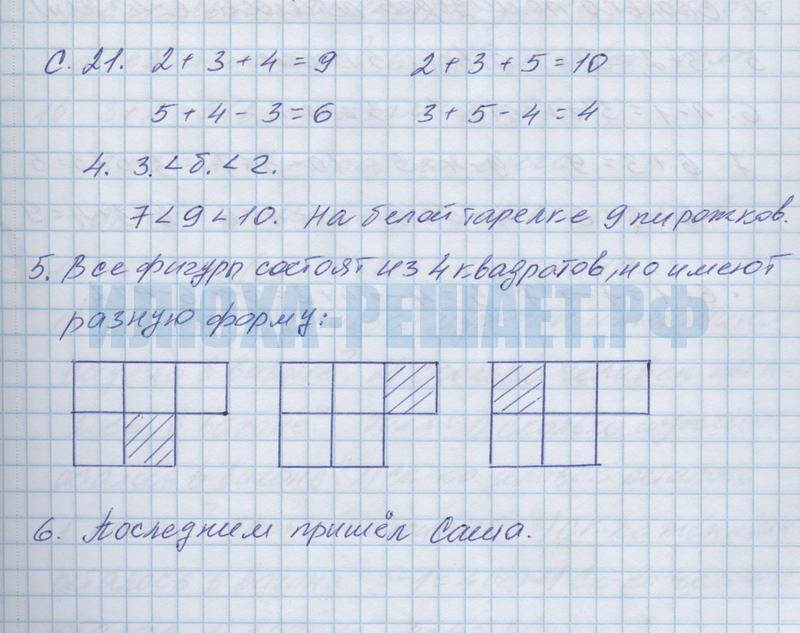 С. 21. 2 + 3 + 4 = 9 2 + 3 + 5 = 10
5 + 4 - 3 = 6 3 + 5 - 4 = 4
4. З. < б. < г.
7 < 9 < 10. На белой тарелке 9 пирожков.
5. Все фигуры состоят из 4 квадратов, но имеют
разную форму:
ИЛЮХА-РЕШАЕТ.РФ
6. Последним пришёл Саша.